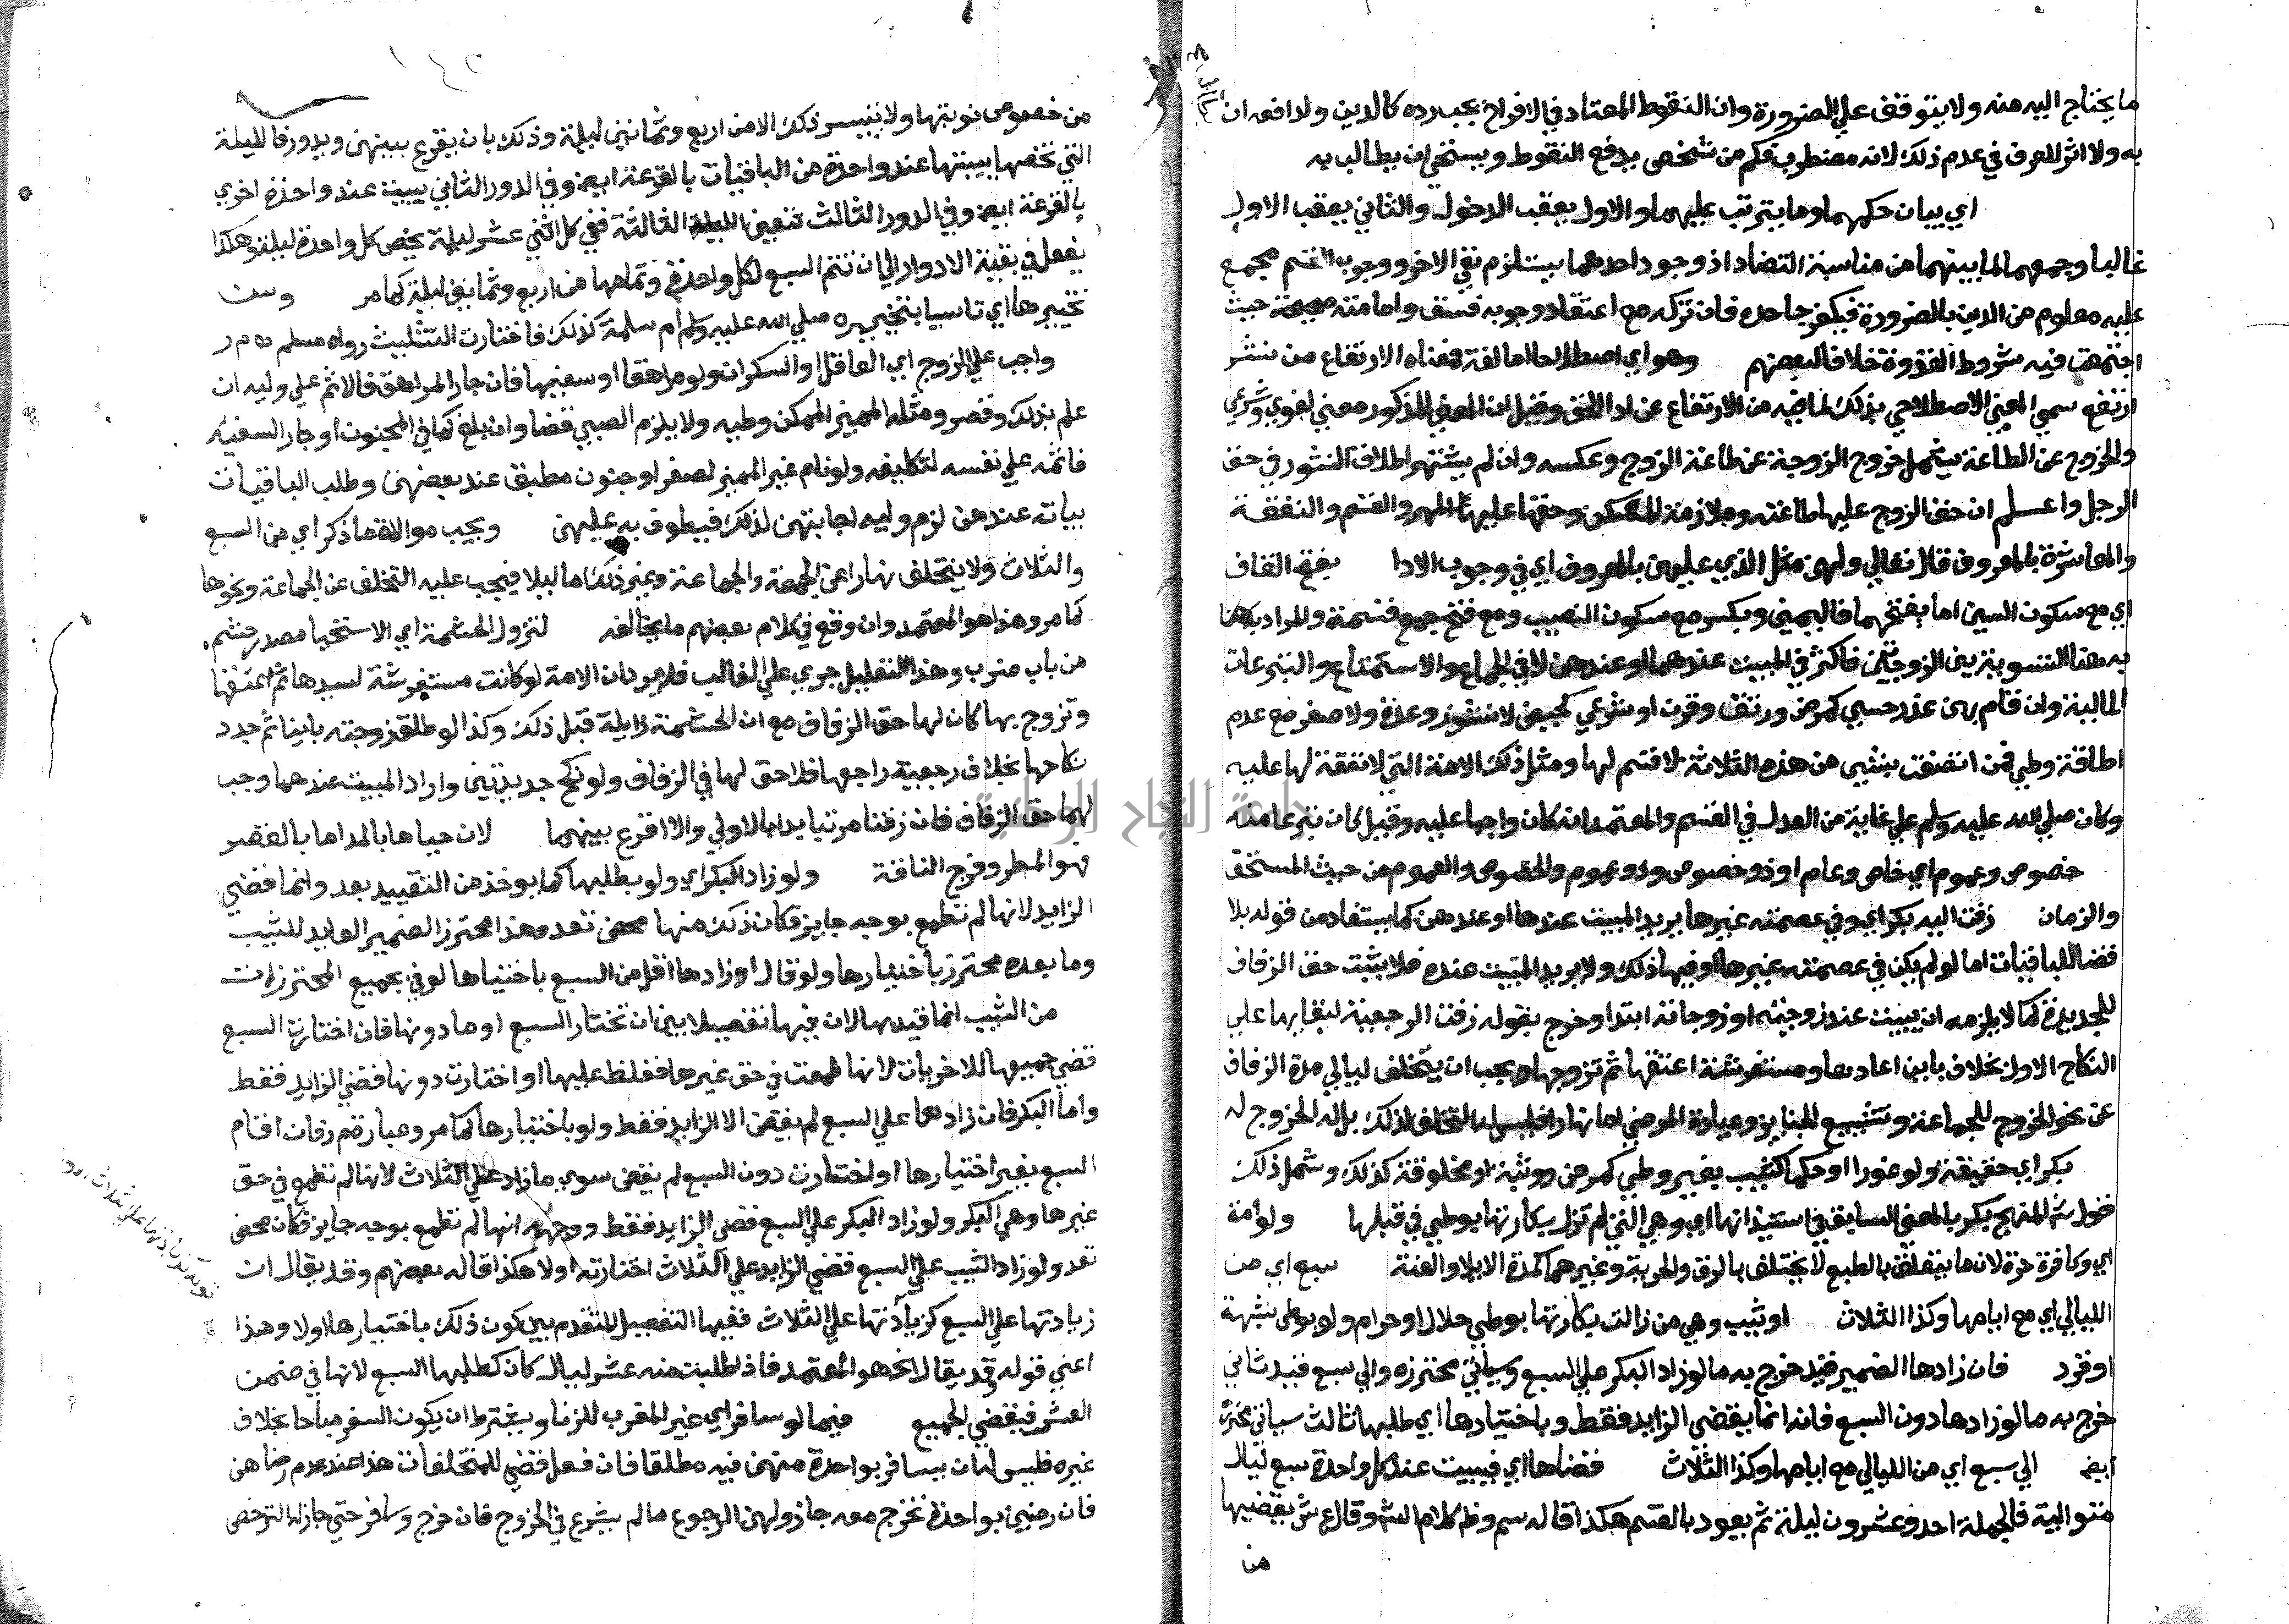 ما يحتاج اليه منه ولا يتوقف علي الضرورة وان النقوط المعتاد في الافراح يجب رده كالدين ولدافعه ان
به ولا اثر للعرف في عدم ذلك لانه مضطرب فكم من شخص يدفع النقوط ويستحي ان يطالب به
اي بيان حكمهما وما يترتب عليهما والاول يعقب الدخول والثاني يعقب الاول
غالبا وجمعهما لما بينهما من مناسبة التضاد اذ وجود احدهما يستلزم نفي الاخر ووجوب القسم مجمع
عليه معلوم من الدين بالضرورة فيكفر جاحده فان تركه مع اعتقاد وجوبه فسق وامامته صحيحة حيث
اجتمعت فيه شروط القدوة خلافا لبعضهم وهو اي اصطلاحا اما لغة فمعناه الارتفاع من نشز
ارتفع سمي المعني الاصطلاحي بذلك لما فيه من الارتفاع عن اداء الحق وقيل ان المعني المذكور معني لغوي وشرعي
والخروج عن الطاعة يشمل خروج الزوجة عن طاعة الزوج وعكسه وان لم يشتهر اطلاق النشوز في حق
الرجل واعلم ان حق الزوج عليها طاعته وملازمة المسكن وحقها عليه المهر والقسم والنفقة
والمعاشرة بالمعروف قال تعالي ولهن مثل الذي عليهن بالمعروف اي في وجوب الادا بفتح القاف
اي مع سكون السين اما بفتحهما فاليمين وبكسر مع سكون النصيب ومع فتح جمع قسمة والمراد
به هنا التسوية بين الزوجتين فاكثر في المبيت عندهما او عندهن لا في الجماع والاستمتاع والتبرعات
المالية وان قام بهن عذر حسي كمرض ورتق وقرن او شرعي كحيض لا نشوز وعدة ولا صغر مع عدم
اطاقة وطي فمن اتصفت بشيء من هذه الثلاثة لا قسم لها ومثل ذلك الامة التي لا نفقة لها عليه
وكان صلي الله عليه وسلم علي غاية من العدل في القسم والمعتمد انه كان واجبا عليه وقيل كان تبرعا منه
خصوص وعموم اي خاص وعام او ذو خصوص وذو عموم والخصوص والعموم من حيث المستحق
والزمان زفت اليه بكر اي وفي عصمته غيرها يريد المبيت عندها او عندهن كما يستفاد من قوله بلا
قضا للباقيات اما لو لم يكن في عصمته غيرها او فيها ذلك ولا يريد المبيت عنده فلا يثبت حق الزفاف
للجديدة كما لا يلزمه ان يبيت عند زوجته او زوجاته ابتدا وخرج بقوله زفت الرجعية لبقائها علي
النكاح الاول بخلاف باين اعادها ومستفرشة اعتقها ثم تزوجها ويجب ان يتخلف ليالي مدة الزفاف
عن نحو الخروج للجماعة وتشييع الجنايز وعيادة المرضي اما نهارا فليس له التخلف لذلك بل له الخروج له
بكر اي حقيقة ولو عورا او حكما كثيب بغير وطي كمرض ووثبة او مخلوقة كذلك وشمل ذلك
قول شم المنهج بكر بالمعني السابق في استئذانها اي وهي التي لم تزل بكارتها بوطي في قبلها ولو امة
اي وكافرة حرة لان ما يتعلق بالطبع لا يختلف بالرق والحرية وغيرهما كمدة الايلا والعنة سبع اي من
الليالي اي مع ايامها وكذا الثلاث او ثيب وهي من زالت بكارتها بوطي حلال او حرام ولو بوطي شبهة
او قرد فان زادها الضمير قيد خرج به ما لو زاد البكر علي السبع وسيأتي محترزه والي سبع قيد ثاني
خرج به ما لو زادها دون السبع فانه انما يقضي الزايد فقط وباختيارها اي طلبها ثالث سياتي محترزه
ايضا الي سبع اي من الليالي مع ايامها وكذا الثلاث قضاها اي فيبيت عند كل واحدة سبع ليال
متوالية فالجملة احد وعشرون ليلة ثم يعود بالقسم هكذا قاله سم وظ كلام الش وقال ع ش يقضيها
من
١٤٢
من خصوص نوبتها ولا يتيسر ذلك الا من اربع وثمانين ليلة وذلك بان يقرع بينهن ويدور فالليلة
التي تخصها يبيتها عند واحدة من الباقيات بالقرعة ايضا وفي الدور الثاني يبيت عند واحدة اخري
بالقرعة ايضا وفي الدور الثالث تتعين الليلة الثالثة ففي كل اثني عشر ليلة يخص كل واحدة ليلة وهكذا
يفعل في بقية الادوار الي ان تتم السبع لكل واحدة وتمامها من اربع وثمانين ليلة كما مر وسن
تخييرها اي تاسيا بتخييره صلي الله عليه وسلم ام سلمة كذلك فاختارت التثليث رواه مسلم م ر
واجب علي الزوج اي العاقل او السكران ولو مراهقا او سفيها فان جار المراهق فالاثم علي وليه ان
علم بذلك وقصر ومثله المميز الممكن وطيه ولا يلزم الصبي قضا وان بلغ كما في المجنون او جار السفيه
فاثمه علي نفسه لتكليفه ولو نام غير المميز لصغر او جنون مطبق عند بعضهن وطلب الباقيات
بياته عندهن لزم وليه اجابتهن لذلك فيطوف به عليهن ويجب موالاة ما ذكر اي من السبع
والثلاث ولا يتخلف نهارا عن الجمعة والجماعة وغير ذلك اما ليلا فيجب عليه التخلف عن الجماعة ونحوها
كما مر وهذا هو المعتمد وان وقع في كلام بعضهم ما يخالفه لتزول الحشمة اي الاستحيا مصدر حشم
من باب ضرب وهذا التعليل جري علي الغالب فلا يرد ان الامة لو كانت مستفرشة لسيدها ثم اعتقها
وتزوج بها كان لها حق الزفاف مع ان الحشمة زايلة قبل ذلك وكذا لو طلق زوجته باينا ثم جدد
نكاحها بخلاف رجعية راجعها فلا حق لها في الزفاف ولو نكح جديدتين واراد المبيت عندهما وجب
لهما حق الزفاف فان زفتا مرتبا بدا بالاولي والا اقرع بينهما لان حياها بالمد اما بالقصر
فهو المطر وفرج الناقة ولو زاد البكر اي ولو بطلبها كما يوخذ من التقييد بعد وانما قضي
الزايد لانها لم تطمع بوجه جايز فكان ذلك منها محض تعد وهذا محترز الضمير العايد للثيب
وما بعده محترز باختيارها ولو قال او زادها اقل من السبع باختيارها لو في بجميع المحترزات
من الثيب انما قيد بها لان فيها تفصيلا بين ان تختار السبع او ما دونها فان اختارت السبع
قضي جميعها للاخريات لانها طمعت في حق غيرها فغلظ عليها او اختارت دونها قضي الزايد فقط
واما البكر فان زادها علي السبع لم يقض الا الزايد فقط ولو باختيارها كما مر وعبارة م ر فان اقام
السبع بغير اختيارها او اختارت دون السبع لم يقض سوي ما زاد علي الثلاث لانها لم تطمع في حق
غيرها وهي البكر ولو زاد البكر علي السبع قضي الزايد فقط ووجهه انها لم تطمع بوجه جايز فكان محض
تعد ولو زاد الثيب علي السبع قضي الزايد علي الثلاث اختارته اولا هكذا قاله بعضهم وقد يقال ان
زيادتها علي السبع كزيادتها علي الثلاث ففيها التفصيل المتقدم بين كون ذلك باختيارها اولا وهذا
اعني قوله وقد يقال الخ هو المعتمد فاذا طلبت منه عشر ليال كان كطلبها السبع لانها في ضمن
العشر فيقضي الجميع فيما لو سافر اي غير المقرب للزنا ويشترط ان يكون السفر مباحا بخلاف
غيره فليس له ان يسافر بواحدة منهن فيه مطلقا فان فعل قضي للمتخلفات هذا عند عدم رضاهن
فان رضين بواحدة تخرج معه جاز ولهن الرجوع ما لم يشرع في الخروج فان خرج وسافر حتي جاز له الترخص